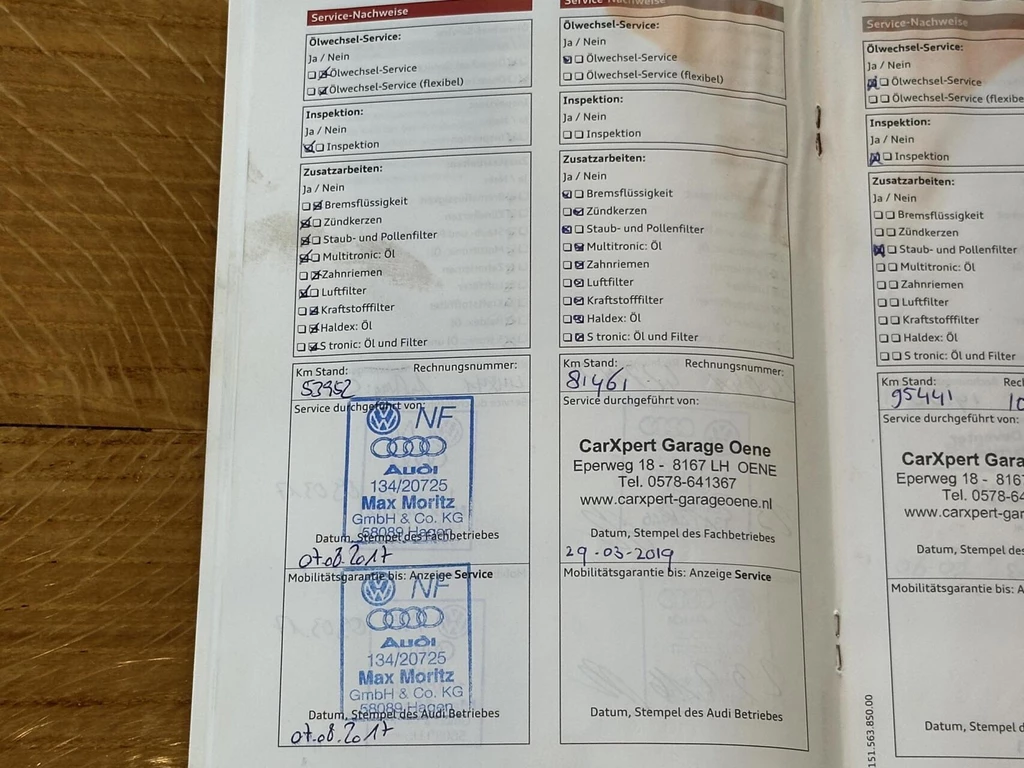 Service-Nachweise
Ölwechsel-Service:
Ja / Nein
Ölwechsel-Service
Ölwechsel-Service (flexibel)
Inspektion:
Ja / Nein
Inspektion
Zusatzarbeiten:
Ja / Nein
Bremsflüssigkeit
Zündkerzen
Staub- und Pollenfilter
Multitronic: Öl
Zahnriemen
Luftfilter
Kraftstofffilter
Haldex: Öl
S tronic: Öl und Filter
Km Stand: Rechnungsnummer:
53952
Service durchgeführt von:
NF
Audi
134/20725
Max Moritz
GmbH & Co. KG
58089 Hagen
Datum, Stempel des Fachbetriebes
07.08.2017
Mobilitätsgarantie bis: Anzeige Service
NF
Audi
134/20725
Max Moritz
GmbH & Co. KG
58089 Hagen
Datum, Stempel des Audi Betriebes
07.08.2017
Service-Nachweise
Ölwechsel-Service:
Ja / Nein
Ölwechsel-Service
Ölwechsel-Service (flexibel)
Inspektion:
Ja / Nein
Inspektion
Zusatzarbeiten:
Ja / Nein
Bremsflüssigkeit
Zündkerzen
Staub- und Pollenfilter
Multitronic: Öl
Zahnriemen
Luftfilter
Kraftstofffilter
Haldex: Öl
S tronic: Öl und Filter
Km Stand: Rechnungsnummer:
81461
Service durchgeführt von:
CarXpert Garage Oene
Eperweg 18 - 8167 LH OENE
Tel. 0578-641367
www.carxpert-garageoene.nl
Datum, Stempel des Fachbetriebes
29-03-2019
Mobilitätsgarantie bis: Anzeige Service
Datum, Stempel des Audi Betriebes
Service-Nachweise
Ölwechsel-Service:
Ja / Nein
Ölwechsel-Service
Ölwechsel-Service (flexibe
Inspektion:
Ja / Nein
Inspektion
Zusatzarbeiten:
Ja / Nein
Bremsflüssigkeit
Zündkerzen
Staub- und Pollenfilter
Multitronic: Öl
Zahnriemen
Luftfilter
Kraftstofffilter
Haldex: Öl
S tronic: Öl und Filter
Km Stand: Rec
95441 10
Service durchgeführt von:
CarXpert Gara
Eperweg 18 - 816
Tel. 0578-64
www.carxpert-gar
Datum, Stempel des
Mobilitätsgarantie bis: A
Datum, Stempel des
151.563.850.00